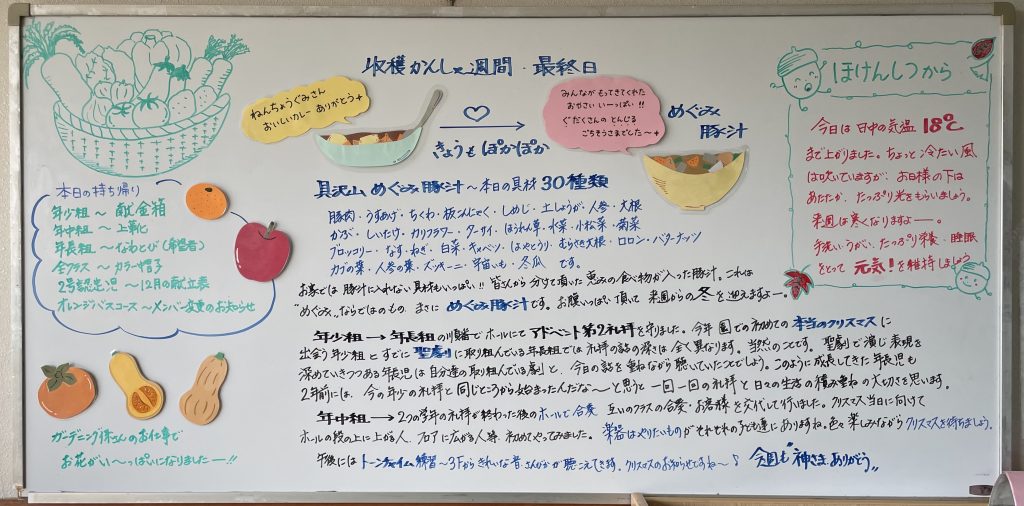 収穫かんしゃ週間・最終日
ねんちょうぐみさん
おいしいカレー ありがとう
きょうも ぽかぽか
みんなが もってきてくれた
おやさい いーっぱい!!
ぐだくさんの とんじる
ごちそうさまでした〜
めぐみ
豚汁
本日の持ち帰り
年少組〜献金箱
年中組〜上靴
年長組〜なわとび(希望者)
全クラス〜カラー帽子
2号認定児〜12月の献立表
オレンジバスコース〜メンバー変更のお知らせ
ガーデニング隊さんのお仕事で
お花がい〜っぱいになりましたー!!
具沢山 めぐみ豚汁〜本日の具材 30種類
豚肉・うすあげ・ちくわ・板こんにゃく・しめじ・土しょうが・人参・大根
かぶ・しいたけ・カリフラワー・ターサイ・ほうれん草・水菜・小松菜・菊菜
ブロッコリー・なす・ねぎ・白菜・キャベツ・はやとうり・むらさき大根・コロン・バターナッツ
カブの葉・人参の葉・ズッキーニ・宇宙いも・冬瓜 です。
お家では 豚汁に入れない具材もいっぱい!! 皆さんから 分けて頂いた 恵みの食べ物が入った豚汁。これは
"めぐみ"ならではのもの まさに めぐみ豚汁です。お腹いっぱい頂いて 来週からの冬を迎えますよー。
年少組→年長組の順番で ホールにて アドベント第2礼拝を守りました。今年 園での初めての 本当のクリスマスに
出会う年少組と すでに 聖劇に取り組んでいる年長組では 礼拝の話の深さは 全く異なります。当然のことです。聖劇で演じ表現を
深めていきつつある年長児は 自分達の取り組んでいる劇と、今日の話を重ねながら聴いていたことでしょう。このように成長してきた年長児も
2年前には、今の年少の礼拝と同じところから始まったんだな〜と思うと 一回一回の礼拝と日々の生活の積み重ねの大切さを思います。
年中組→2つの学年の礼拝が終わった後のホールで合奏 互いのクラスの合奏・お客様を交代して行いました。クリスマス当日に向けて
ホールの段の上に上がる人、フロアに広がる人等 初めてやってみました。楽器はやりたいものがそれぞれの子ども達にありますね。色々楽しみながらクリスマスを待ちましょう。
午後には トーンチャイム練習〜3Fからきれいな音さんが 聴こえてきます。クリスマスのお知らせですね〜♪ 今週も 神さま ありがとう
ほけんしつから
今日は 日中の気温 18℃
まで上がりました。ちょっと冷たい風
は吹いていますが、お日様の下は
あたたか、たっぷり光をもらいましょう。
来週は寒くなりますよー。
手洗い・うがい、たっぷり栄養・睡眠
をとって 元気!を維持しましょう